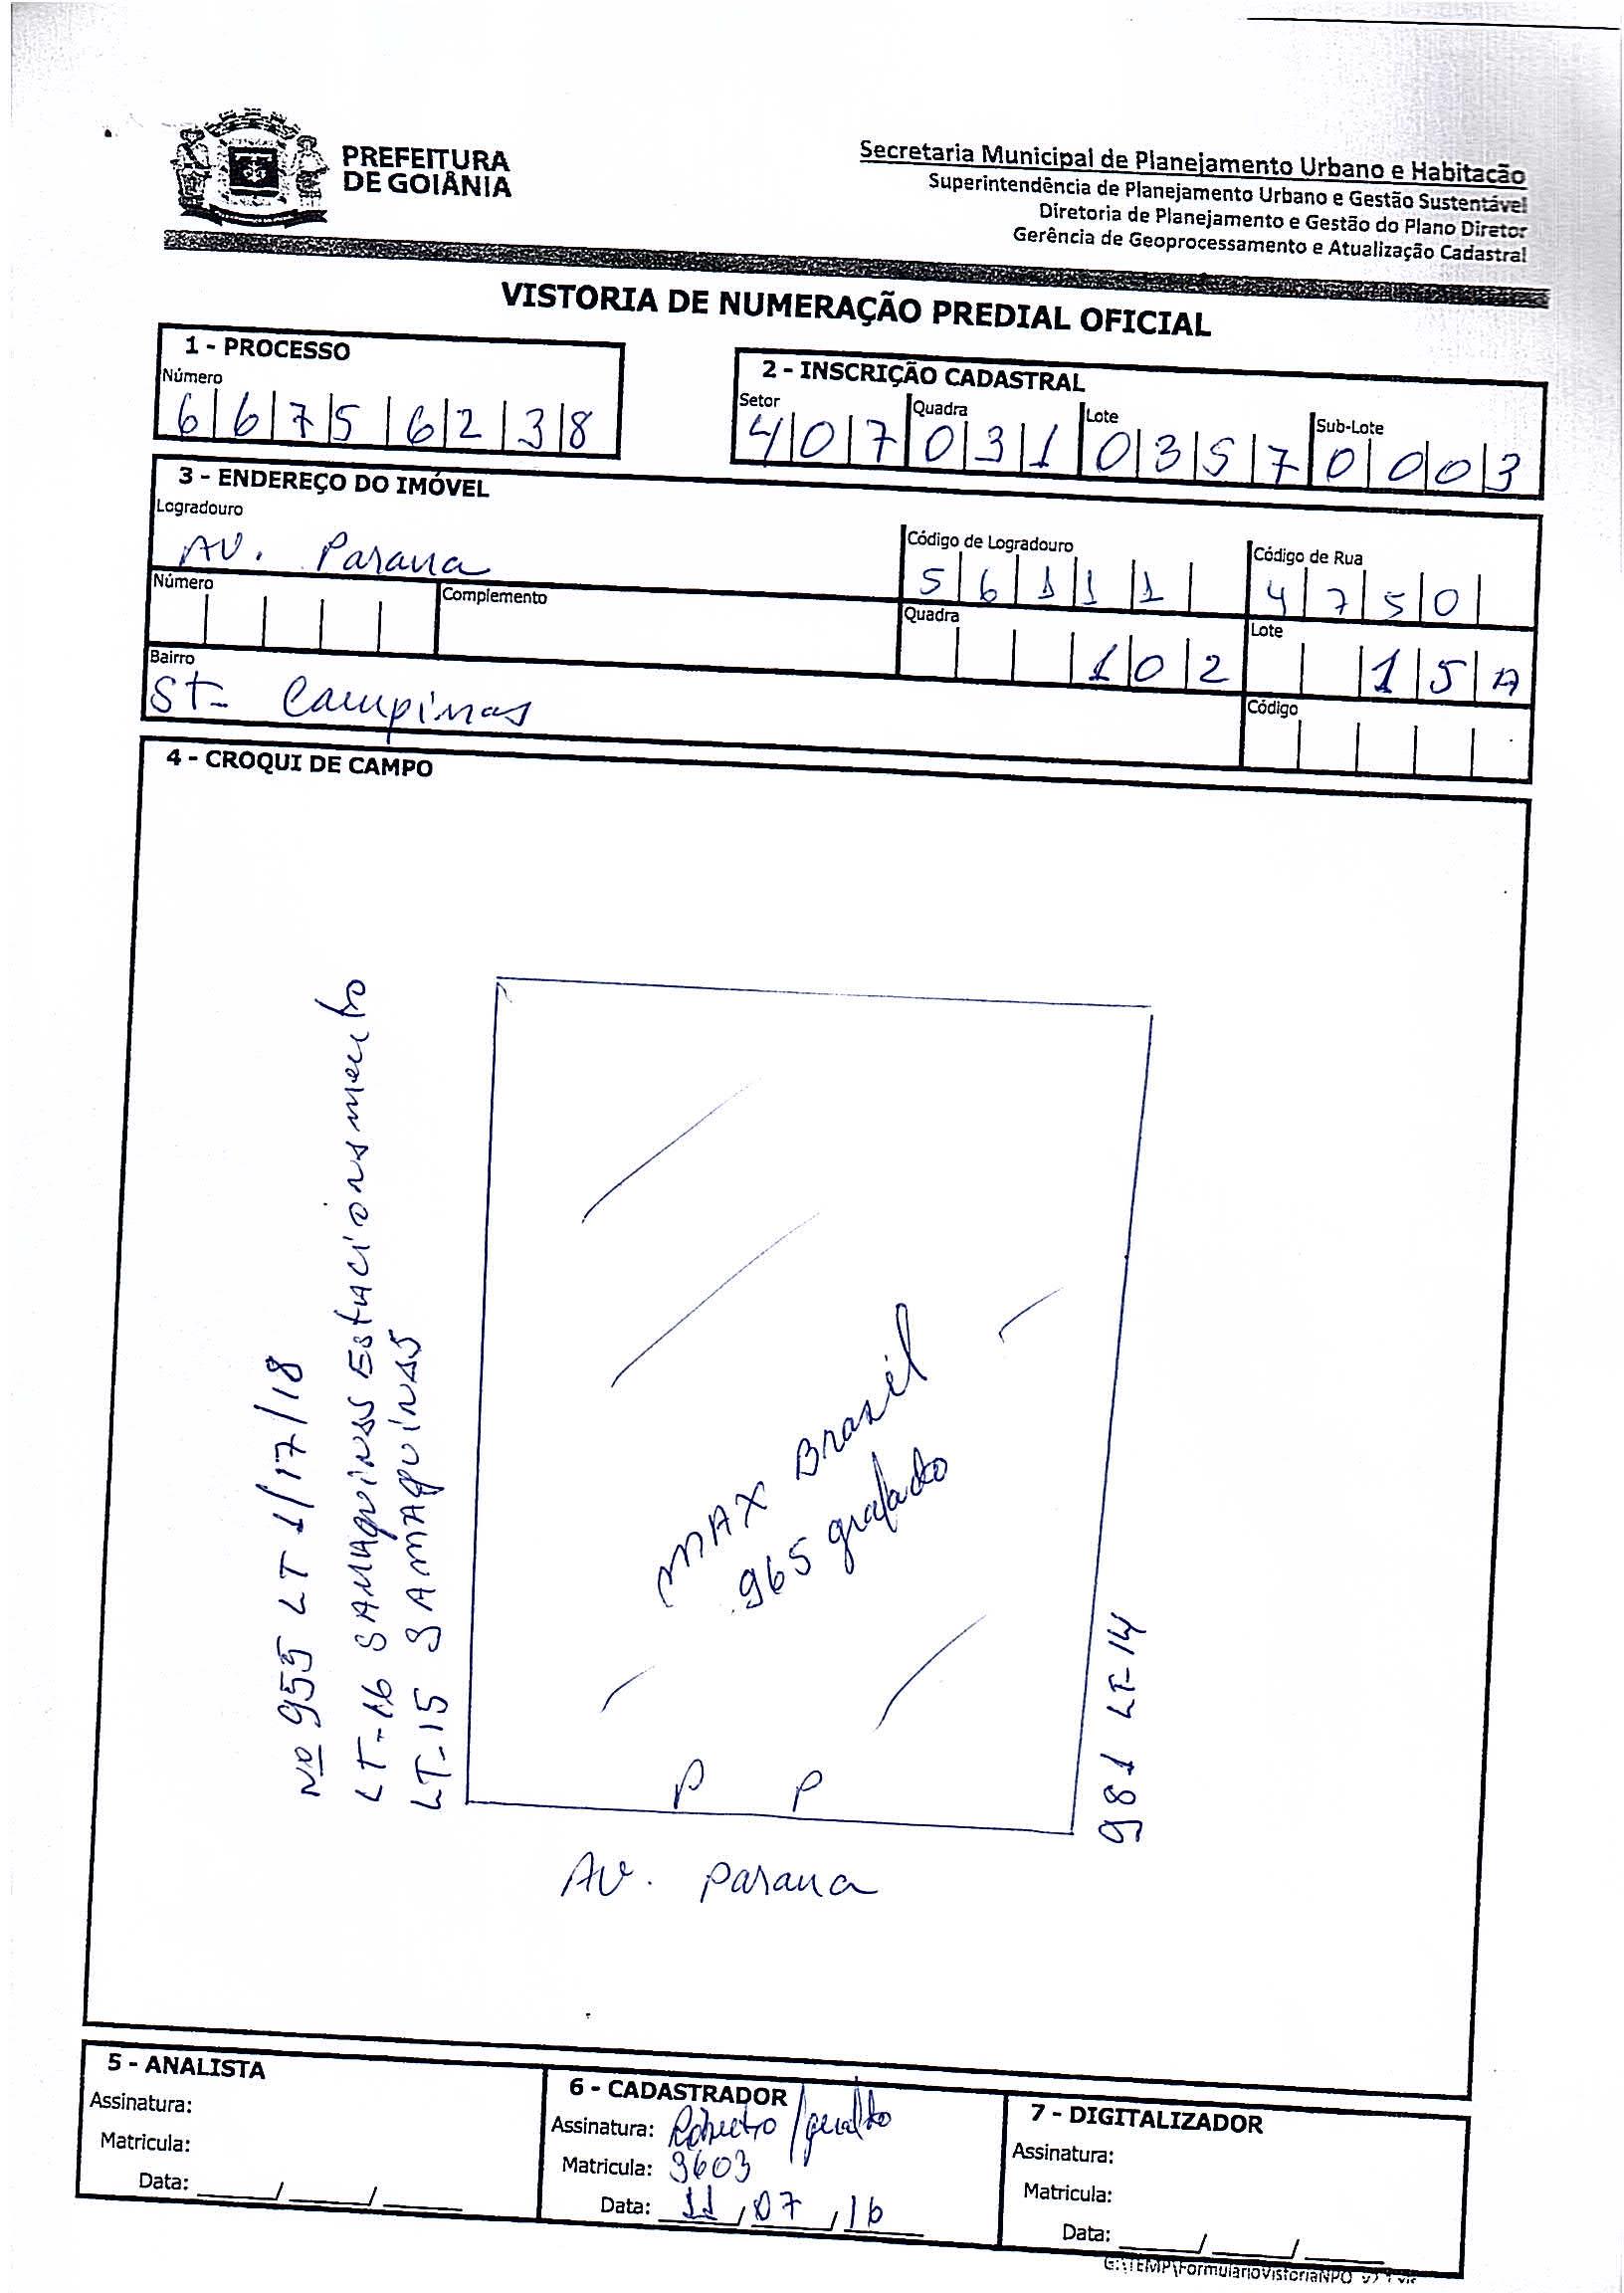 PREFEITURA
DE GOIÂNIA
Secretaria Municipal de Planejamento Urbano e Habitação
Superintendência de Planejamento Urbano e Gestão Sustentável
Diretoria de Planejamento e Gestão do Plano Diretor
Gerência de Geoprocessamento e Atualização Cadastral
VISTORIA DE NUMERAÇÃO PREDIAL OFICIAL
1 - PROCESSO
Número
6 6 7 5 6 2 3 8
2 - INSCRIÇÃO CADASTRAL
Setor Quadra Lote Sub-Lote
4 0 7 0 3 1 0 3 5 7 0 0 0 3
3 - ENDEREÇO DO IMÓVEL
Logradouro
AV. Parana
Código de Logradouro
5 6 1 1 1
Código de Rua
4 7 5 0
Número
Complemento
Quadra
1 0 2
Lote
1 5 A
Bairro
St- Campinas
Código
4 - CROQUI DE CAMPO
Nº 955 LT 1/17/18
LT-16 SAMAquinas Estacionamento
LT-15 SAMAquinas
MAX Brasil
965 grafado
981 LT-14
P P
AV. Parana
5 - ANALISTA
Assinatura:
Matricula:
Data: ____/____/____
6 - CADASTRADOR
Assinatura: Roberto / geraldo
Matricula: 9603
Data: 11/07/16
7 - DIGITALIZADOR
Assinatura:
Matricula:
Data: ____/____/____